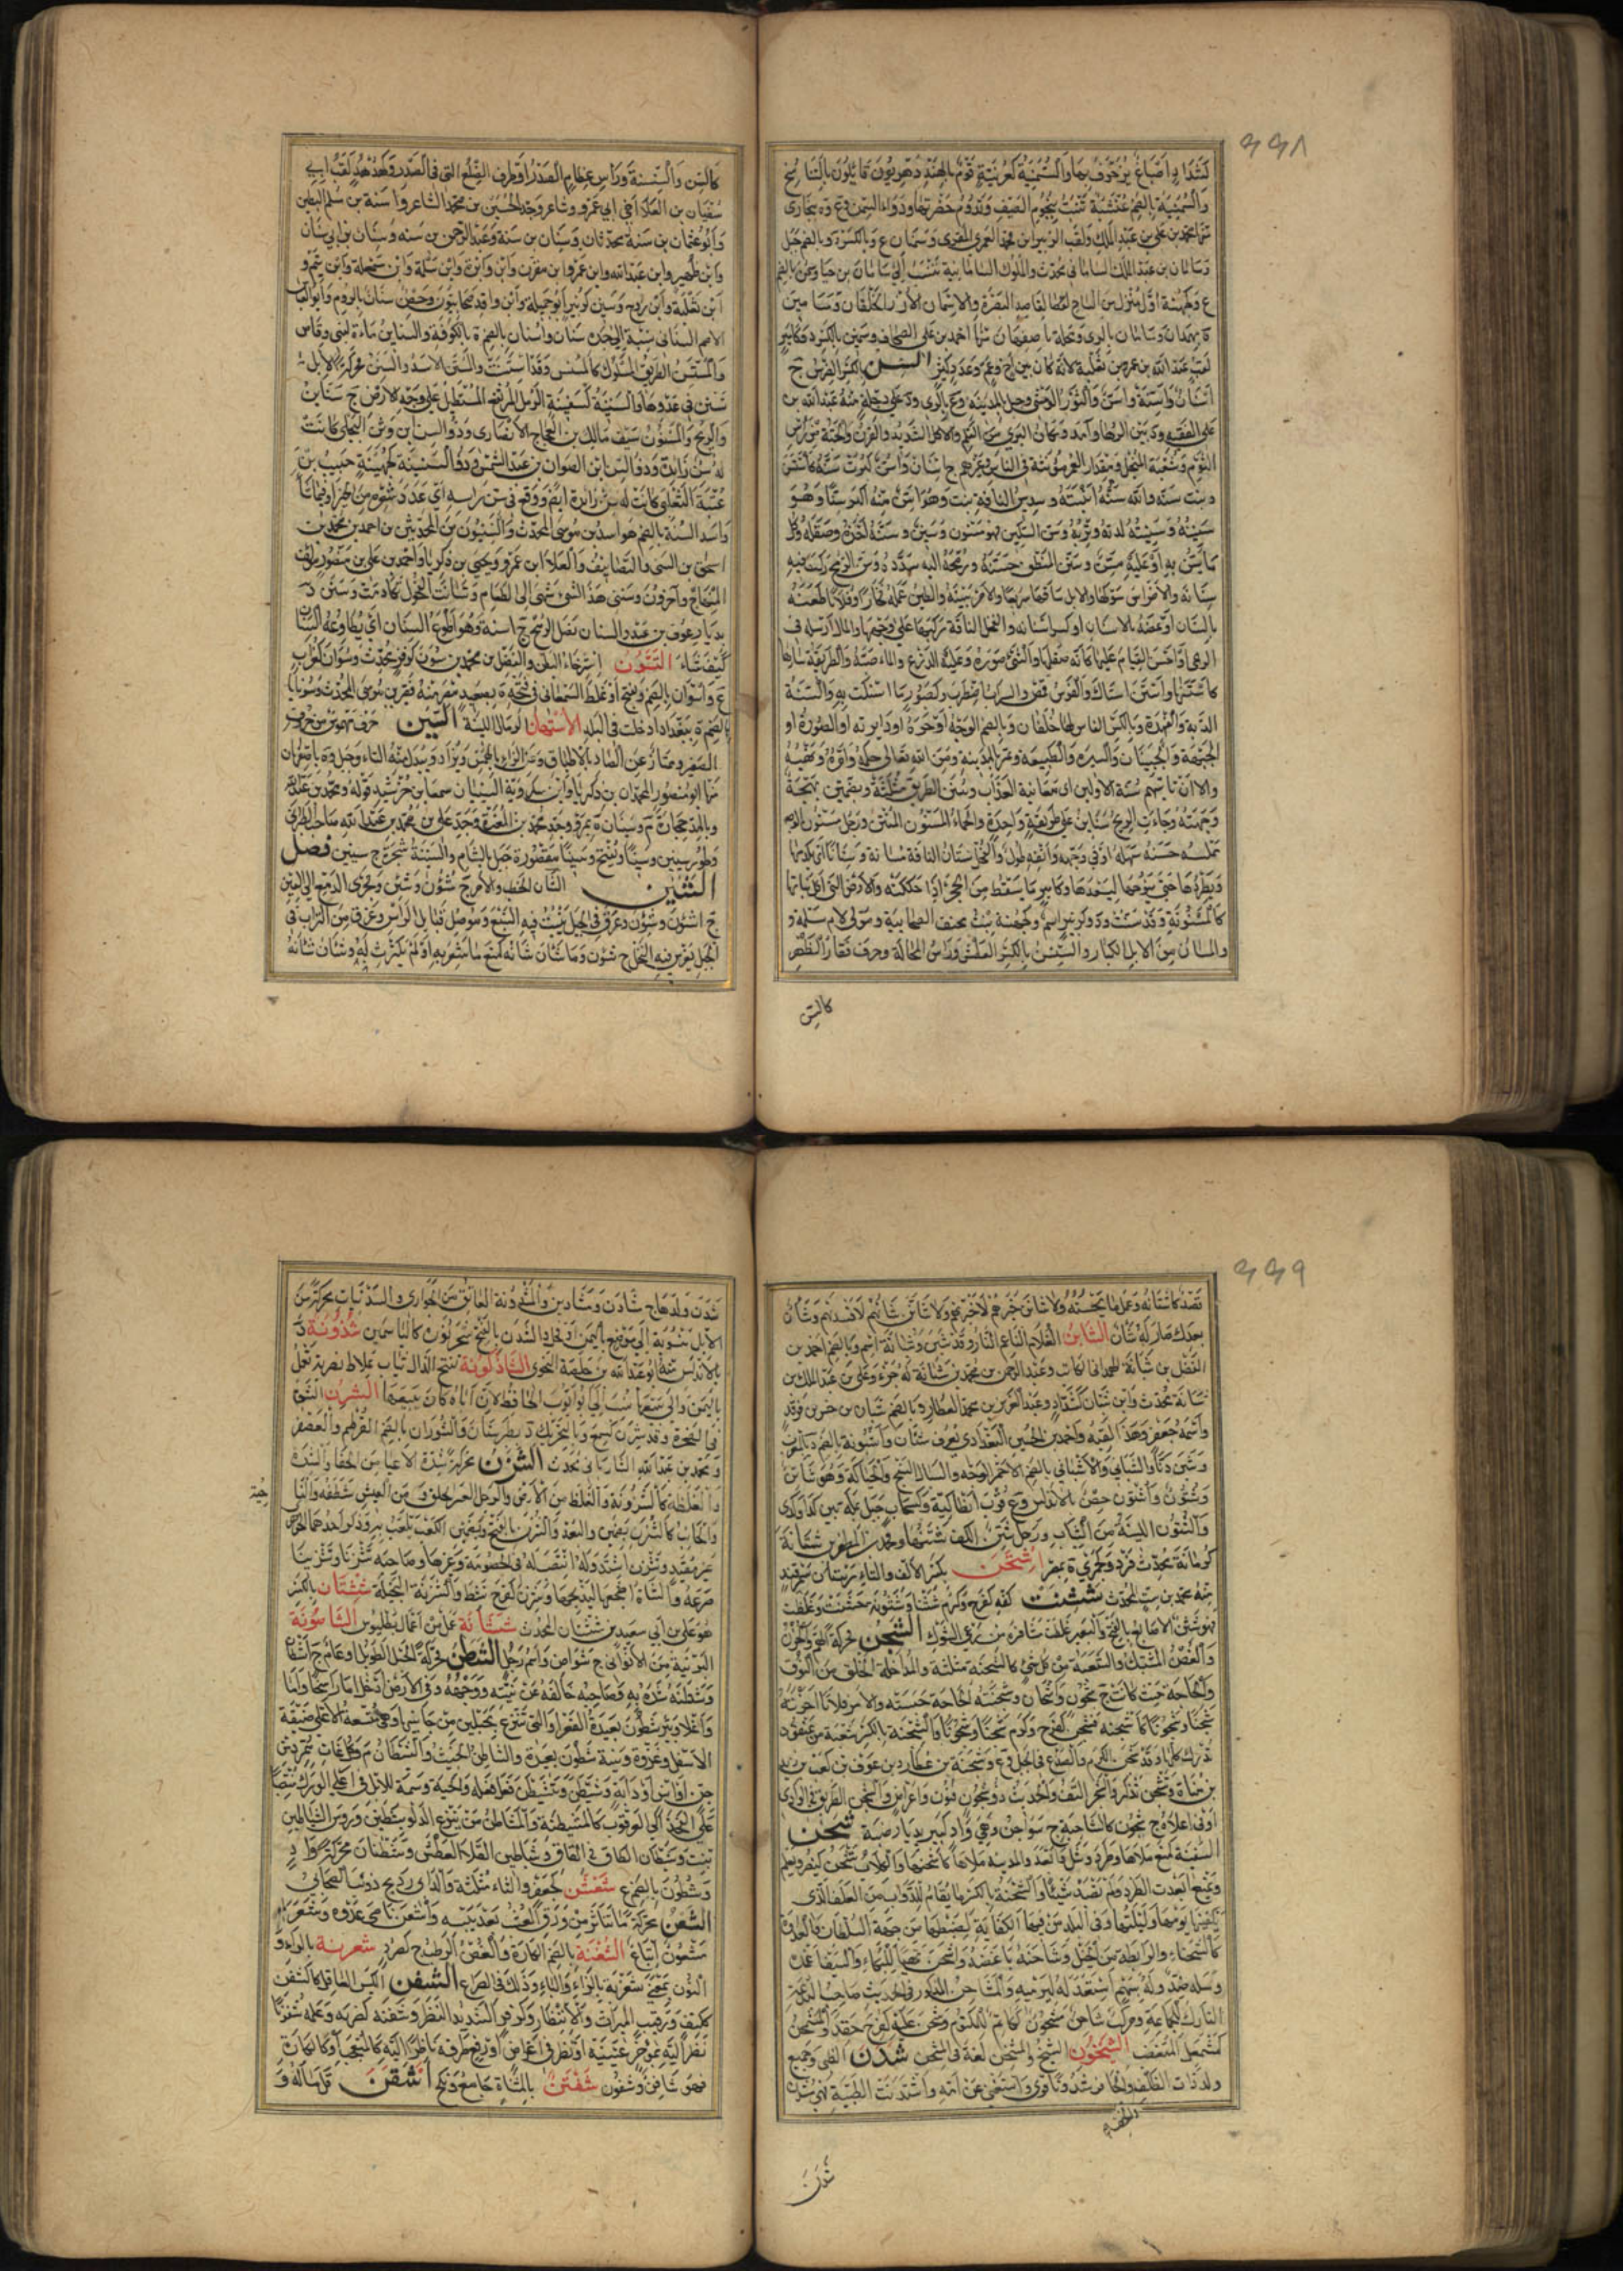 ٦٦٨
كشداد اصباغ يزخرف بها والسمنية كعرنية قوم بالهند دهريون قائلون بالتناسخ
والسمنية بالضم عشبة تنبت بنجوم الصيف وتدوم خضرتها ودواء السمن وع وة ببخارى
ع وجهينة اول منزل من النباج لقاصد البصرة والاسمان الازر الخلقان وسامين
ة بهمدان وسامان بالرى ومحلة باصفهان منها احمد بن على الصحاف وسمين بالكسر د
لقب عبد الله بن عمرو بن ثعلبة لانه كان بين اخ وعم وعدد كثير السن بالكسر الضرس ج
اسنان واسنة واسن والثور الوحشى وجبل بالمدينة وع بالرى ود على دجلة منه عبد الله بن
على الفقيه ود بين الرها وآمد
الثوم وشعبة المنجل ومقدار العمر مؤنثة فى الناس وغيرهم ج اسنان واسن كبرت سنه كاستسن
سنينه وسنينته لدته وتربه وسن السكين فهو مسنون وسنين وسننه احده وصقله وكل
ما يسن به او عليه مسن وسنن المنطق حسنه ورمحه اليه سدده وسن الرمح ركب فيه
سنانه والاضراس سوكها والابل ساقها سريعا والامر بينه والطين عمله فخارا وفلانا طعنه
بالسنان او عضه بالاسنان او كسر اسنانه والفحل الناقة كبها على وجهها والمال ارسله فى
الرعى او احسن القيام عليها كانه صقلها والشئ صوره وعليه الدرع والماء صبه والطريقة سارها
كاستنها واستن استاك والفرس قمص والسراب اضطرب وكصبور ما استكت به والسنة
الدبة والفهدة وبالكسر الفاس لها خلفان وبالضم الوجه او حره او دايرته او الصورة او
الجبهة والجبينان والسيرة والطبيعة وتمر بالمدينة ومن الله تعالى حكمه وامره ونهيه
والا ان تاتيهم سنة الاولين اى معاينة العذاب وسنن الطريق مثلثة وبضمتين نهجه
وجهته وجاءت الريح سناين على طريقة واحدة والحماء المسنون المنتن ورجل مسنون الوجه
مملسه حسنه سهله او فى وجهه وانفه طول والفحل استان الناقة مسانة وسنانا اى يكدمها
ويطردها حتى ينوخها ليسفدها وكامير ما يسقط من الحجر اذا حككته والارض التى اكل نباتها
كالمسنونة وقد سنت ود وكزبير اسم وكجهينة بنت مخنف الصحابية ومولى لام سلمة و
والمسان من الابل الكبار والسنسن بالكسر العطش وراس المحالة وحرف فقار الظهر
كالسن
كالسن والسنسنة وراس عظام الصدر او طرف الضلع التى فى الصدر وكهدهد لقب ابى
سفيان بن العلاء اخى ابى عمرو وشاعر وجد الحسين بن محمد الشاعر واسنة بن سلم البطين
وابو عثمان بن سنة محدثان وسنان بن سنة وعبد الرحمن بن سنه وسنان بن ابى سنان
وابن ظهير وابن عبد الله وابن عمرو ابن مقرن وابن وبرة وابن سلمة وابن شمعلة وابن تيم و
ابن ثعلبة وابن روح وسنين كزبير ابو جميلة وابن واقد صحابيون وحصن سنان بالروم وابو العباس
والمستسن الطريق المسلوك كالمسنسن وقد استسنت والسنن الاسد والسنن محركة الابل
تستن فى عدوها والسنينة كسفينة الرمل المرتفع المستطيل على وجه الارض ج سناين
والريح والمسنون سيف مالك بن العجلان الانصارى وذو السن ابن وثن البجلى كانت
له سن زائدة وذو السن ابن الصوان بن عبد شمس وذو السنينة كجهينة حبيب بن
عتبة الثعلبى كانت له سن زايدة ايضا ووقع فى سن راسه اى عدد شعره من الخير او فيما شاء
واسد السنة بالضم هو اسد بن موسى المحدث والسنيون من المحدثين بن احمد بن محمد بن
اسحاق بن السنى ذو التصانيف والعلاء ابن عمرو ويحيى بن زكريا واحمد بن على بن منصور مؤلف
المنهاج وآخرون وسننى هذا الشئ شهى الى الطعام وتسانت الفحول تكادمت وسنين د
بديار عوف بن عبد والسنان نصل الرمح ج اسنة وهو اطوع السنان اى يطاوعه السنان
كيف شاء التسون استرخاء البطن والفضل بن محمد بن سون كزفر محدث وسوان كغراب
ع واسوان بالضم ويفتح او غلط السمعانى فى فتحه ة بصعيد مصر منه فقير بن موسى المحدث وسونايا
بالضم ة ببغداد ادخلت فى البلد الاسهان الرمال اللينة السين حرف مهموس من حروف
الصفير ويمتاز عن الصاد بالاطباق وعن الزاى بالهمس ويزاد ويبدل منه التاء وجبل وة باصفهان
منها ابو منصور المحمدان بن زكريا وابن سكرويه السينيان سمعا بن خرشيد قوله ومحمد بن عبد الله
وطور سينين وسينا ويفتح وسينا مقصورة جبل بالشام والسينة شجرة ج سينين فصل
الشين الشان الخطب والامر ج شؤون وشئن ومجرى الدمع الى العين
ج اشؤن وشؤن وعرق فى الجبل ينبت فيه النبع وموصل قبائل الراس وعرق من التراب فى
الجبل يغرس فيه النخل ج شئون وما شان شانه كمنع ما شعر به او لم يكترث له وشان شانه
٦٦٩
قصد كاشتانه وعمل ما يحسنه ولاشانن خبرهم لاخبرنهم ولاشانن شانهم لافسدنهم وشان
بعدك صار له شان الشابن الغلام الناعم التار وقد شبن وشبانة اسم وبالضم احمد بن
الفضل بن شبانة الهمدانى الكاتب وعبد الرحمن بن محمد بن شبانة له جزء وعلى بن عبد الملك بن
شبانة محدث وابن شبان كشداد وعبد العزيز بن محمد العطار وبالضم شبان بن جسر بن فرقد
واسمه جعفر وهذا لقبه واحمد بن الحسين البغدادى يعرف بشبان واشبونة بالضم د بالمغرب
وشبن دنا والشبانى والاشبانى بالضم الاحمر الوجه والسبال الشتن النسج والحياكة وهو شاتن
وشتون واشتون حصن بالاندلس وع قرب انطاكية وكسحاب جبل بمكة بين كدا وكدى
والشتون اللينة من الثياب ورجل شتن الكف شثنها
كرمانة محدث فرد وكجهرى ة بمصر اشتخن بكسر الالف والتاء رستاق بسمرقند
منه محمد بن مت المحدث شثنت كفه كفرح وكرم شثنا وشثونة خشنت وغلظت
فهو شثن الاصابع بالفتح والبعير غلظت مشافره من رعى الشوك الشجن محركة الهم والحزن
والغصن المشتبك والشعبة من كل شئ كالشجنة مثلثة والمتداخلة الخلق من النوق
والحاجة حيث كانت ج شجون واشجان وشجنته الحاجة حبسته والامر فلانا احزنه
شجنا وشجونا كاشجنه فشجن كفرح وكرم شجنا وشجونا والشجنة بالكسر شعبة من عنقود
تدرك كلها وقد شجن الكرم والصدع فى الجبل وع وشجنة بن عطارد بن عوف بن كعب بن زيد
بن مناة وتشجن تذكر والشجر التف والحديث ذو شجون فنون واغراض والشجن الطريق فى الوادى
او فى اعلاه ج شجون كالشاجنة ج شواجن وهى واد كبير بديار ضبة شحن
السفينة كمنع ملاها وطرد وشل وابعد والمدينة ملاها كاشحنها والكلاب تشحن كينصر ويعلم
وتمنع ابعدت الطرد ولم تصد شيئا والشحنة بالكسر ما يقام للدواب من العلف الذى
يكفيها يومها وليلتها وفى البلد من فيها الكفاية لضبطها من جهة السلطان والعداوة
كالشحناء والرابطة من الخيل وشاحنه باغضه واشحن تهيا للبكاء والسيف اغمده
وسله ضد وله بسهم استعد له ليرميه والمشاحن المذكور فى الحديث صاحب البدعة
التارك للجماعة ومركب شاحن مشحون ككاتم للمكتوم وشحن عليه كفرح حقد والمشحئن
كمشمعل المتغضب الشيخون الشيخ والمشخئن لغة فى المشحئن شدن الظبى وجميع
ولد ذات الظلف والخف والحافر شدونا قوى واستغنى عن امه واشدنت الظبية فهى مشدن
شدن
شدن ولدها ج مشادن ومشادين والمشدونة العاتق من الجوارى والشدنيات محركة من
الابل منسوبة الى موضع باليمن او فحل والشدن بالفتح شجر نوره كالياسمين شذونة د
بالاندلس منه ابو عبد الله بن خلصة النحوى الشاذكونة بفتح الذال ثياب غلاظ مضربة تعمل
باليمن والى بيعها نسب ابو ايوب الحافظ لان اباه كان يبيعها الشرن الشق
فى الصخرة وقد شرن كسمع وبالتحريك د بطبرستان والشوران بالضم القرطم والعصفر
ومحمد بن عبد الله الشارانى محدث الشزن محركة شدة الاعياء من الحفا والشدة
والغلظة كالشزونة والغلظ من الارض والرجل العسر الخلق ومن العيش شظفه والناحية
والجانب كالشزن بضمتين والبعد والشزن بالفتح وبضمتين الكعب يلعب به
وتشزن اشتد وله انتصب له فى الخصومة وغيرها وصاحبه تشزنا وتشزينا
صرعه والشاة اضجعها ليذبحها وشزن كفرح نشط والشزنة البخيلة ششتان بالكسر
هو على بن ابى سعيد بن ششتان المحدث ششانة عمل من اعمال بطليوس الشاصونة
البرنية من الاوانى ج شواصن واسم رجل الشطن محركة الحبل الطويل او عام ج اشطان
وشطنه شده به وصاحبه خالفه عن نيته ووجهه وفى الارض دخل اما راسخا واما
واغلا وبئر شطون بعيدة القعر او التى تنزع بحبلين من جانبيها وهى متسعة الاعلى ضيقة
الاسفل وغزوة ونية شطون بعيدة والشاطن الخبيث والشيطان م وكل عات متمرد من
جن او انس او دابة وشيطن وتشيطن فعل فعله والحية وسمة للابل فى اعلى الورك منتصبا
على الفخذ الى العرقوب كالمشيطنة والمشاطن من ينزع الدلو بشطنين ورءوس الشياطين
نبت وشيطان الطاق فى القاف وشياطين الفلا العطش وشطنان محركة واد
وشطون بالضم ع شعثن كجعفر والثاء مثلثة والداى رديح ذؤيب الصحابى
الشعن محركة ما تناثر من ورق العشب بعد يبسه واشعن ناصى عدوه وشعر
مشعون اتباع الشغنة بالضم الكارة والغصن الرطب ج كصرد شغرنة بالراء و
النون بمعنى شغزبة بالزاى والباء وذلك فى الصراع الشفن الكيس العاقل كالشفن
ككتف ورقيب الميراث والانتظار وكزفر الشديد النظر وشفنه كضربه وعلمه شفونا
نظر اليه بمؤخر عينيه او نظر فى اعراض او رفع طرفه ناظرا اليه كالمتعجب او كالكاره
فهو شافن وشفون شفتن بالمثناة جامع ونكح اشقن قل ماله و